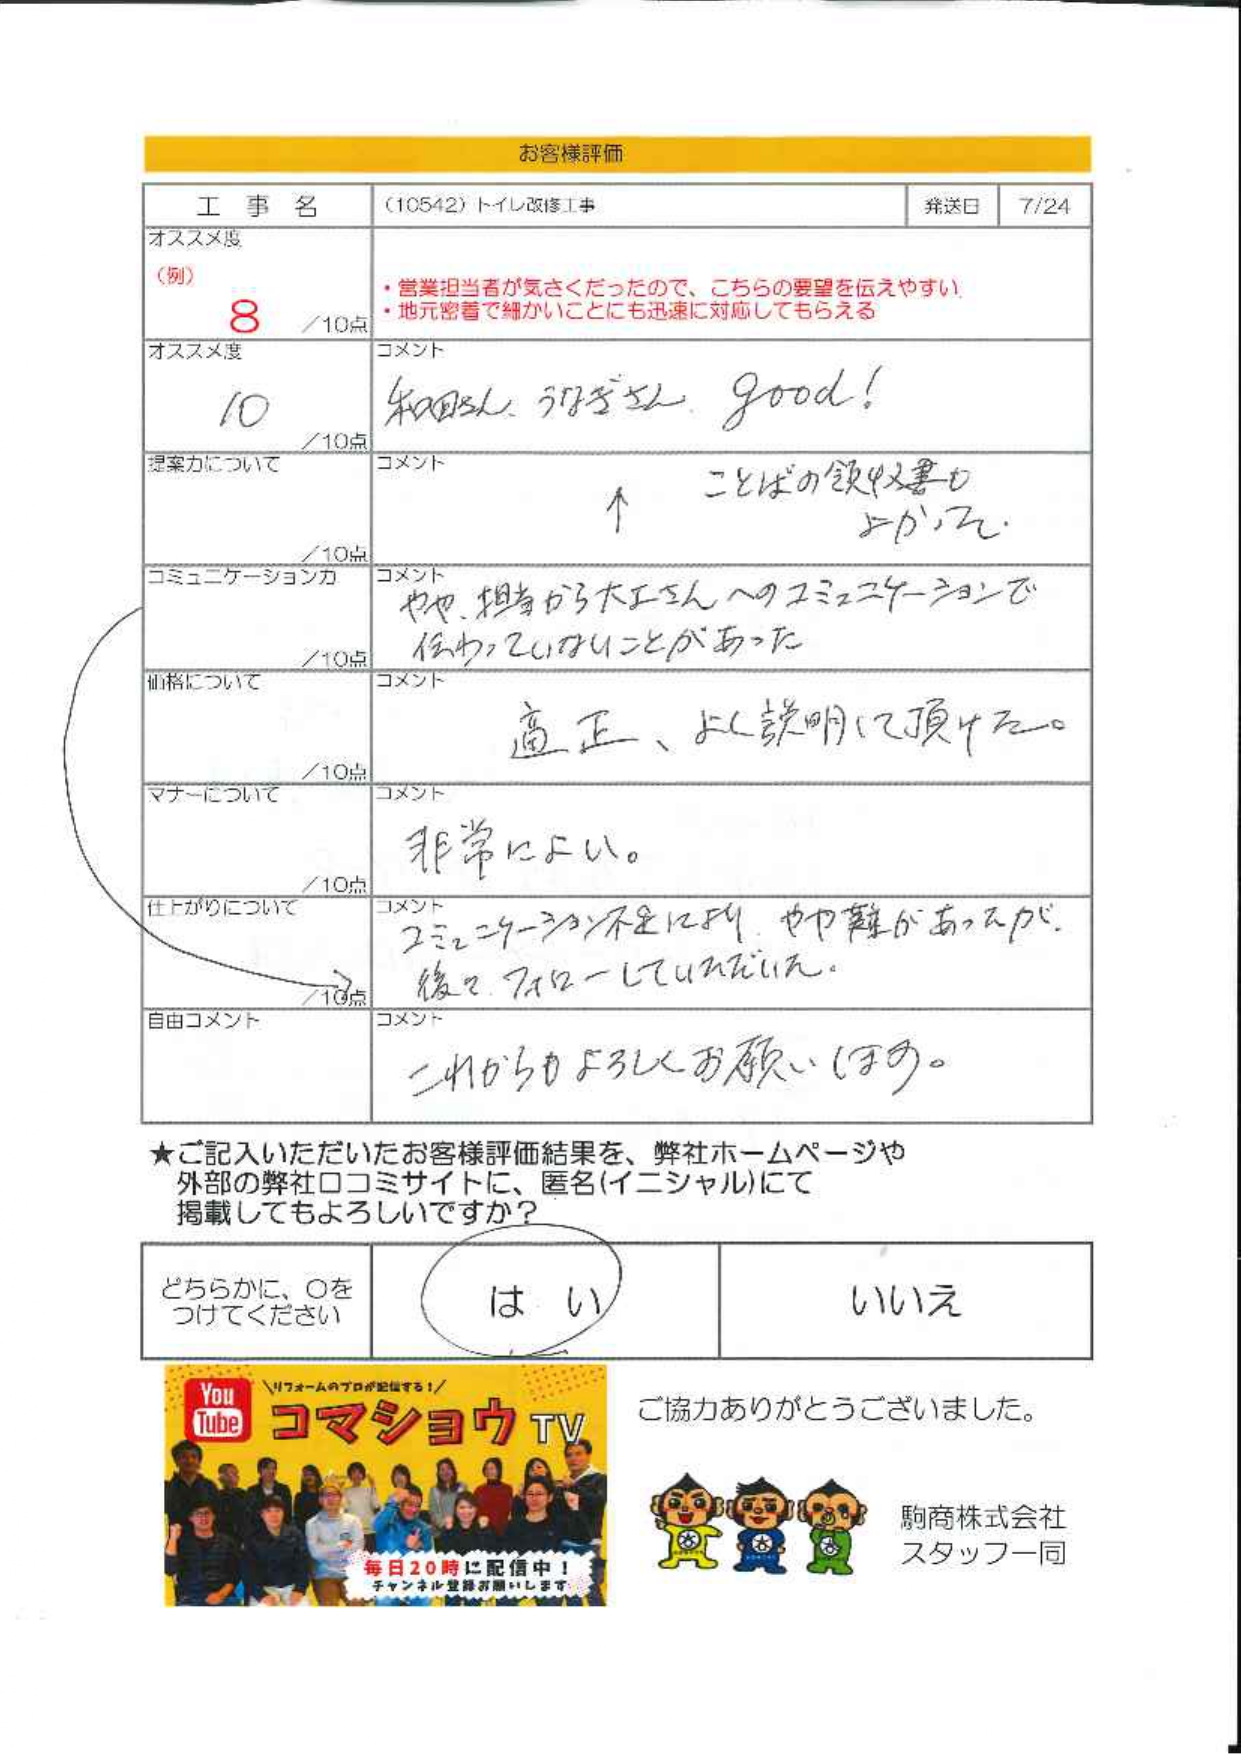 お客様評価
工 事 名 (10542) トイレ改修工事 発送日 7/24
オススメ度
(例)
8 /10点
・営業担当者が気さくだったので、こちらの要望を伝えやすい
・地元密着で細かいことにも迅速に対応してもらえる
オススメ度
10 /10点
コメント
和田さん、うなぎさん、good!
提案力について
/10点
コメント
↑ ことばの領収書も
よかった.
コミュニケーション力
/10点
コメント
やや、担当から大工さんへのコミュニケーションで
伝わっていないことがあった
価格について
/10点
コメント
適正、よく説明して頂けた。
マナーについて
/10点
コメント
非常によい。
仕上がりについて
/10点
コメント
コミュニケーション不足により、やや難があったが、
後で、フォローしていただいた。
自由コメント
コメント
これからもよろしくお願いします。
★ご記入いただいたお客様評価結果を、弊社ホームページや
外部の弊社口コミサイトに、匿名(イニシャル)にて
掲載してもよろしいですか？
どちらかに、○を
つけてください
は い
いいえ
You
Tube
\リフォームのプロが配信する！/
コマショウTV
毎日20時に配信中！
チャンネル登録お願いします
ご協力ありがとうございました。
駒商株式会社
スタッフ一同